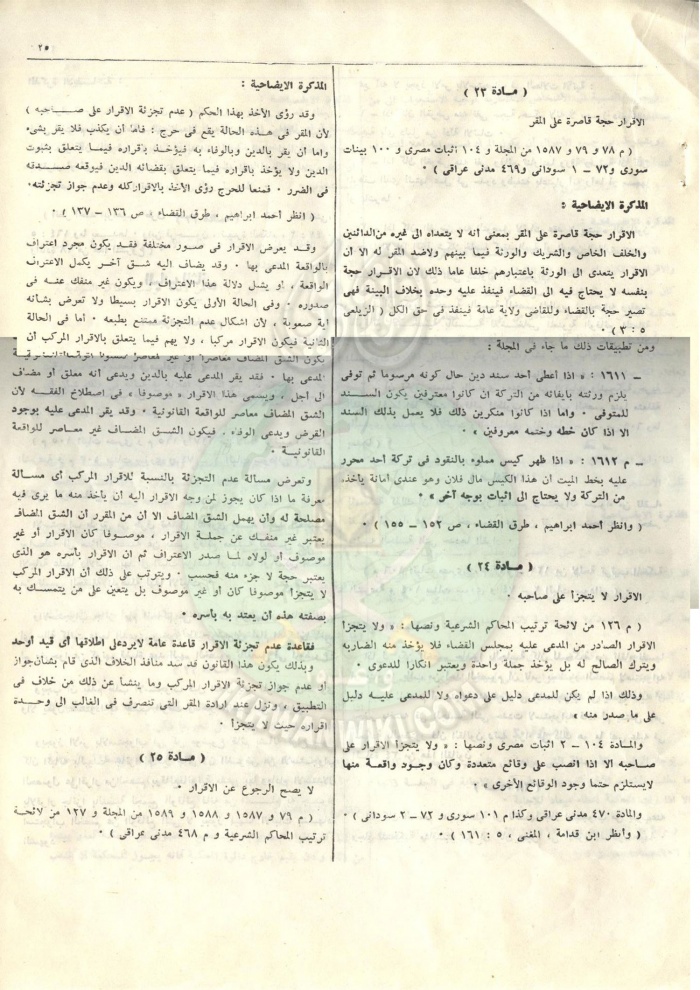 ٢٥
( مادة ٢٣ )
الاقرار حجة قاصرة على المقر
( م ٧٨ و ٧٩ و ١٥٨٧ من المجلة و ١٠٤ اثبات مصرى و ١٠٠ بينات
سورى و٧٢ – ١ سودانى و٤٦٩ مدنى عراقى ) ٠
المذكرة الايضاحية :
الاقرار حجة قاصرة على المقر بمعنى أنه لا يتعداه الى غيره من الدائنين
والخلف الخاص والشريك والورثة فيما بينهم ولاضد المقر له الا أن
الاقرار يتعدى الى الورثة باعتبارهم خلفا عاما ذلك لان الاقرار حجة
بنفسه لا يحتاج فيه الى القضاء فينفذ عليه وحده بخلاف البينة فهى
تصير حجة بالقضاء وللقاضى ولاية عامة فينفذ فى حق الكل ( الزيلعى
٥ : ٣ ) ٠
ومن تطبيقات ذلك ما جاء فى المجلة :
ــ ١٦١١ : « اذا أعطى أحد سند دين حال كونه مرسوما ثم توفى
يلزم ورثته بايفائه من التركة ان كانوا معترفين بكون السند
للمتوفى ٠ واما اذا كانوا منكرين ذلك فلا يعمل بذلك السند
الا اذا كان خطه وختمه معروفين » ٠
ــ م ١٦١٢ : « اذا ظهر كيس مملوء بالنقود فى تركة أحد محرر
عليه بخط الميت أن هذا الكيس مال فلان وهو عندى أمانة يأخذه
من التركة ولا يحتاج الى اثبات بوجه آخر » ٠
( وانظر أحمد ابراهيم ، طرق القضاء ، ص ١٥٢ – ١٥٥ ) ٠
( مادة ٢٤ )
الاقرار لا يتجزأ على صاحبه ٠
( م ١٢٦ من لائحة ترتيب المحاكم الشرعية ونصها : « ولا يتجزأ
الاقرار الصادر من المدعى عليه بمجلس القضاء فلا يؤخذ منه الضاربه
ويترك الصالح له بل يؤخذ جملة واحدة ويعتبر انكارا للدعوى ٠
وذلك اذا لم يكن للمدعى دليل على دعواه ولا للمدعى عليه دليل
على ما صدر منه »
والمادة ١٠٤ – ٢ اثبات مصرى ونصها : « ولا يتجزأ الاقرار على
صاحبه الا اذا انصب على وقائع متعددة وكان وجود واقعة منها
لايستلزم حتما وجود الوقائع الأخرى » ٠
والمادة ٤٧٠ مدنى عراقى وكذا م ١٠١ سورى و ٧٢ – ٢ سودانى ) ٠
( وأنظر ابن قدامة ، المغنى ، ٥ : ١٦١ ) ٠
المذكرة الايضاحية :
وقد رؤى الأخذ بهذا الحكم ( عدم تجزئة الاقرار على صاحبه )
لأن المقر فى هذه الحالة يقع فى حرج : فاما أن يكذب فلا يقر بشىء
واما أن يقر بالدين وبالوفاء به فيؤخذ باقراره فيما يتعلق بثبوت
الدين ولا يؤخذ باقراره فيما يتعلق بقضائه الدين فيوقعه صدقه
فى الضرر ٠ فمنعا للحرج رؤى الأخذ بالاقرار كله وعدم جواز تجزئته٠
( انظر أحمد ابراهيم ، طرق القضاء ، ص ١٣٦ – ١٣٧ ) ٠
وقد يعرض الاقرار فى صور مختلفة فقد يكون مجرد اعتراف
بالواقعة المدعى بها ٠ وقد يضاف اليه شق آخر يكمل الاعتراف
الواقعة ، أو يشل دلالة هذا الاعتراف ، ويكون غير منفك عنه فى
صدوره ٠ وفى الحالة الأولى يكون الاقرار بسيطا ولا تعرض بشأنه
أية صعوبة ، لأن اشكال عدم التجزئة ممتنع بطبعه ٠ أما فى الحالة
الثانية فيكون الاقرار مركبا ، ولا يهم فيما يتعلق بالاقرار المركب أن
يكون الشق المضاف معاصرا أو غير معاصر
المدعى بها ٠ فقد يقر المدعى عليه بالدين ويدعى أنه معلق أو مضاف
الى أجل ، ويسمى هذا الاقرار « موصوفا » فى اصطلاح الفقه لأن
الشق المضاف معاصر للواقعة القانونية ٠ وقد يقر المدعى عليه بوجود
القرض ويدعى الوفاء ، فيكون الشق المضاف غير معاصر للواقعة
القانونية ٠
وتعرض مسألة عدم التجزئة بالنسبة للاقرار المركب أى مسألة
معرفة ما اذا كان يجوز لمن وجه الاقرار اليه أن يأخذ منه ما يرى فيه
مصلحة له وأن يهمل الشق المضاف الا أن من المقرر أن الشق المضاف
يعتبر غير منفك عن جملة الاقرار ، موصوفا كان الاقرار أو غير
موصوف أو لولاه لما صدر الاعتراف ثم ان الاقرار بأسره هو الذى
يعتبر حجة لا جزء منه فحسب ٠ ويترتب على ذلك أن الاقرار المركب
لا يتجزأ موصوفا كان أو غير موصوف بل يتعين على من يتمسك به
بصفته هذه أن يعتد به بأسره ٠
فقاعدة عدم تجزئة الاقرار قاعدة عامة لايرد على اطلاقها أى قيد أوحد
وبذلك يكون هذا القانون قد سد منافذ الخلاف الذى قام بشأن جواز
أو عدم جواز تجزئة الاقرار المركب وما ينشأ عن ذلك من خلاف فى
التطبيق ، ونزل عند ارادة المقر التى تنصرف فى الغالب الى وحدة
اقراره حيث لا يتجزأ ٠
( مادة ٢٥ )
لا يصح الرجوع عن الاقرار ٠
( م ٧٩ و ١٥٨٧ و ١٥٨٨ و ١٥٨٩ من المجلة و ١٢٧ من لائحة
ترتيب المحاكم الشرعية و م ٤٦٨ مدنى عراقى ) ٠